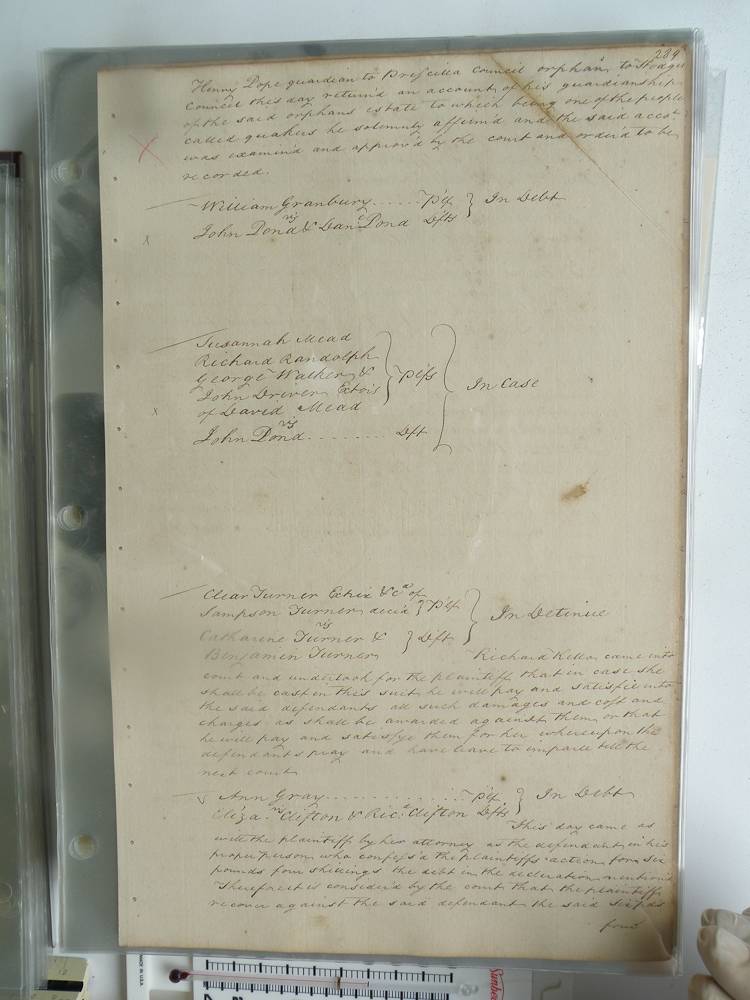 289
Henry Pope guardian to Prescilla Council orphan to Hodges
Council this day return'd an account of his guardianship
of the said orphans estate to which being one of the people
called quakers he solemnly affirm'd and the said acco.t
was examin'd and approv'd by the court and order'd to be
recorded.
William Granbury...... Pltf } In Debt
vs
John Pond & Dan.l Pond Dfts
Susannah Mead
Richard Randolph
George Walker &
John Driver Extors } Pltfs
of David Mead
In Case
vs
John Pond........ Dft
Clear Turner Extrix &c.a of
Sampson Turner dec'd } Pltf } In Detinue
vs
Catharine Turner & } Dfts
Benjamin Turner
Richard Kello came into
court and undertook for the plaintiff that in case she
shall be cast in this suit he will pay and satisfie unto
the said defendants all such damages and cost and
charges as shall be awarded against them or that
he will pay and satisfye them for her whereupon the
defendants pray and have leave to imparle till the
next court
Ann Gray............... Pltf } In Debt
vs
Eliza. Clifton & Ric.d Clifton Dfts
This day came as
well the plaintiff by his attorney as the defendant in his
proper person who confess'd the plaintiffs action for six
pounds four shillings the debt in the declaration mention'd
Therefore it is consider'd by the court that the plaintiff
recover against the said defendant the said six pds
four
MADE IN U.S.A.